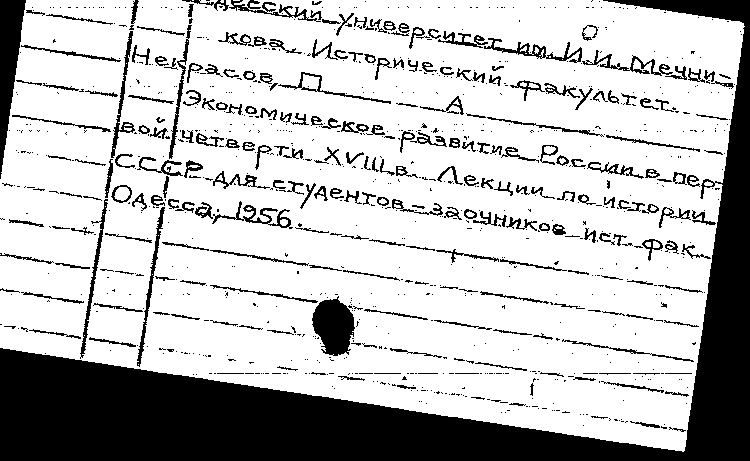 десский университет им. И.И. Мечни-
кова. Исторический факультет.
Некрасов, П А
Экономическое развитие России в пер-
вой четверти XVIII в. Лекции по истории
СССР для студентов-заочников ист. фак.
Одесса, 1956.